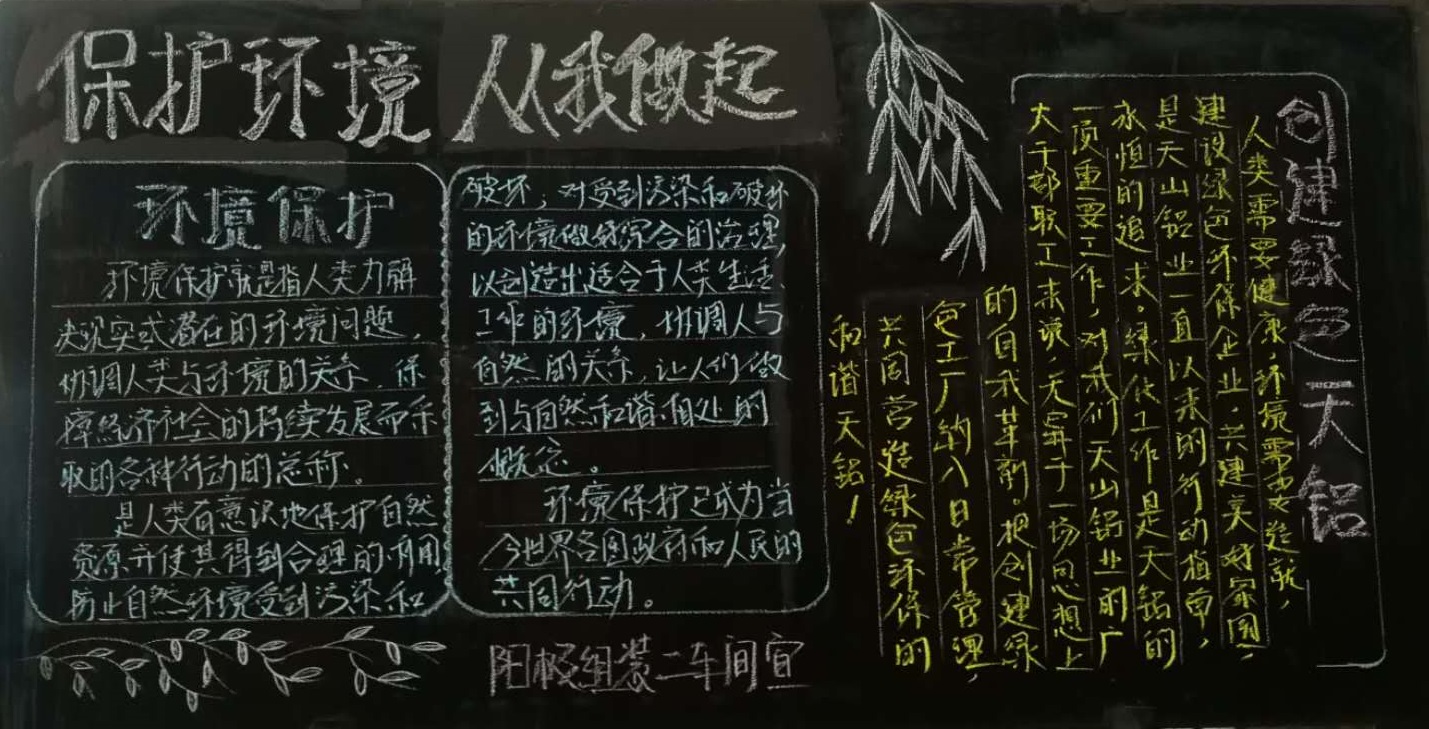 保护环境 从我做起
环境保护
环境保护就是指人类为解
决现实或潜在的环境问题，
协调人类与环境的关系，保
障经济社会的持续发展而采
取的各种行动的总称。
是人类有意识地保护自然
资源并使其得到合理的利用，
防止自然环境受到污染和
破坏；对受到污染和破坏
的环境做好综合的治理，
以创造出适合于人类生活、
工作的环境，协调人与
自然的关系，让人们做
到与自然和谐相处的
概念。
环境保护已成为当
今世界各国政府和人民的
共同行动。
阳极组装二车间宣
创建绿色天铝
人类需要健康，环境需要造就，
建设绿色环保企业，共建美好家园，
是天山铝业一直以来的行动指南，
永恒的追求。绿化工作是天铝的
一项重要工作，对我们天山铝业的广
大干部职工来说，无异于一场思想上
的自我革新。把创建绿
色工厂纳入日常管理，
共同营造绿色环保的
和谐天铝！